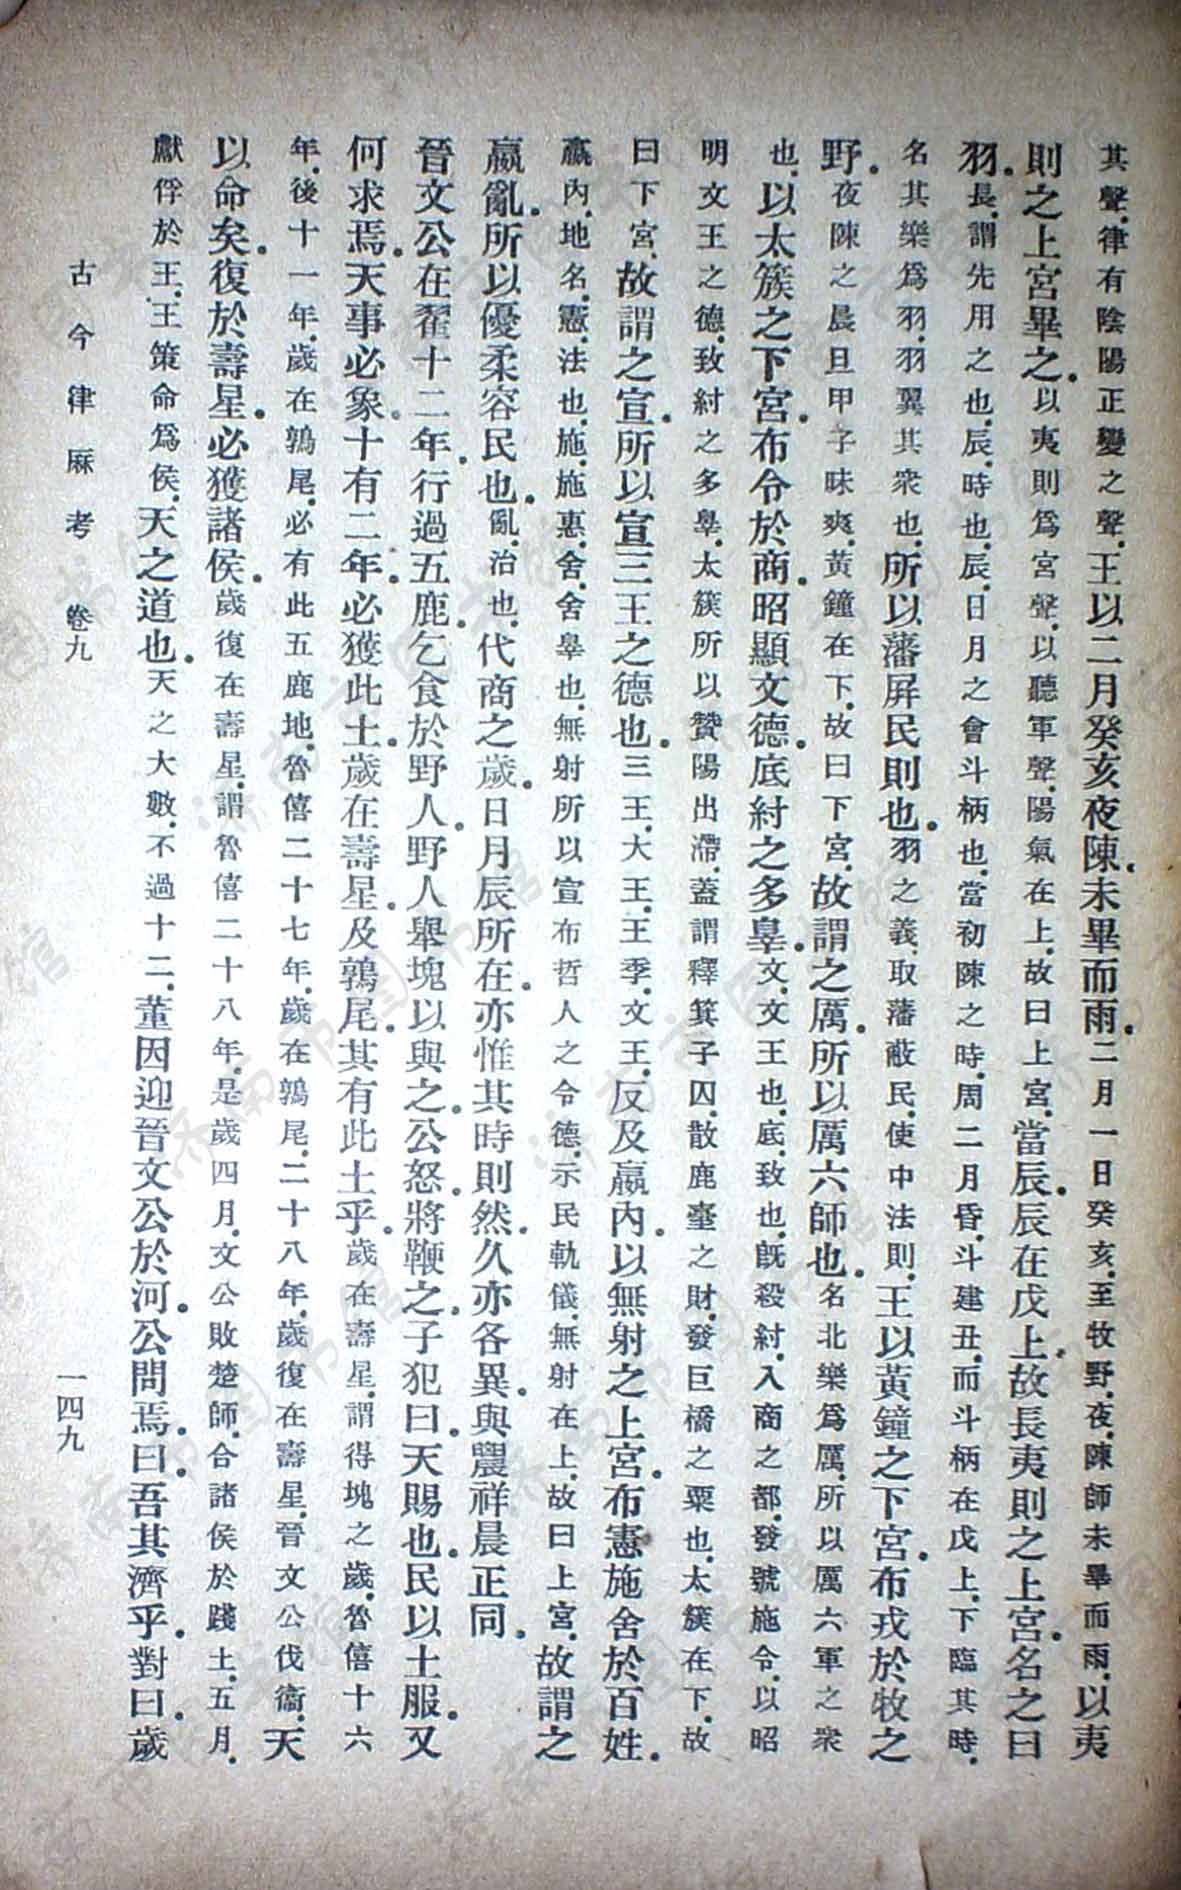 其聲律有陰陽正變之聲王以二月癸亥夜陳未畢而雨二月一日癸亥至牧野夜陳師未畢而雨以夷
則之上宮畢之以夷則爲宮聲以聽軍聲陽氣在上故曰上宮當辰辰在戊上故長夷則之上宮名之曰
羽長謂先用之也辰時也辰日月之會斗柄也當初陳之時周二月昏斗建丑而斗柄在戊上下臨其時
名其樂爲羽羽翼其衆也所以藩屏民則也羽之義取藩蔽民使中法則王以黃鐘之下宮布戎於牧之
野夜陳之晨旦甲子昧爽黃鐘在下故曰下宮故謂之厲所以厲六師也名北樂爲厲所以厲六軍之衆
也以太簇之下宮布令於商昭顯文德底紂之多辠文文王也底致也旣殺紂入商之都發號施令以昭
明文王之德致紂之多辠太簇所以贊陽出滯蓋謂釋箕子囚散鹿臺之財發巨橋之粟也太簇在下故
曰下宮故謂之宣所以宣三王之德也三王大王王季文王反及嬴內以無射之上宮布憲施舍於百姓
嬴內地名憲法也施施惠舍舍辠也無射所以宣布哲人之令德示民軌儀無射在上故曰上宮故謂之
嬴亂所以優柔容民也亂治也代商之歲日月辰所在亦惟其時則然久亦各異與農祥晨正同
晉文公在翟十二年行過五鹿乞食於野人野人舉塊以與之公怒將鞭之子犯曰天賜也民以土服又
何求焉天事必象十有二年必獲此土歲在壽星及鶉尾其有此土乎歲在壽星謂得塊之歲魯僖十六
年後十一年歲在鶉尾必有此五鹿地魯僖二十七年歲在鶉尾二十八年歲復在壽星晉文公伐衞天
以命矣復於壽星必獲諸侯歲復在壽星謂魯僖二十八年是歲四月文公敗楚師合諸侯於踐土五月
獻俘於王王策命爲侯天之道也天之大數不過十二董因迎晉文公於河公問焉曰吾其濟乎對曰歲
古今律厤考 卷九 一四九